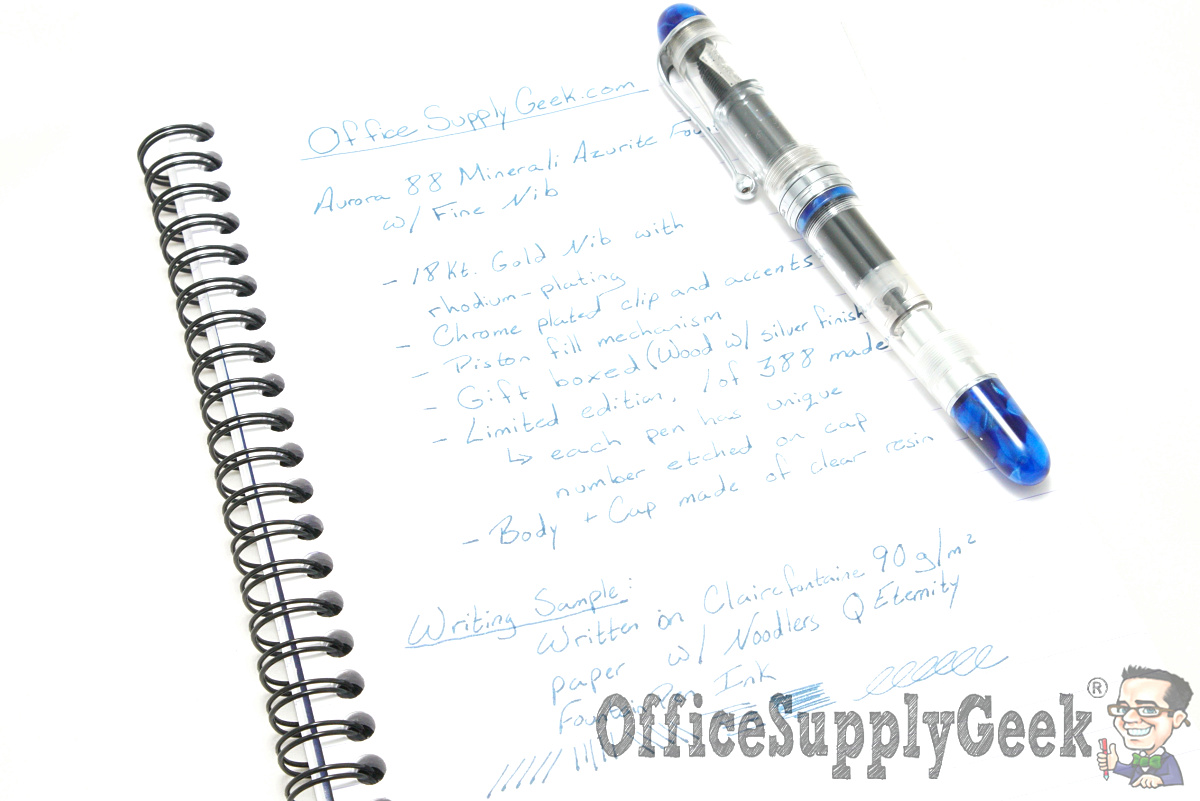 OfficeSupplyGeek.com
Aurora 88 Minerali Azurite
w/ Fine Nib
- 18Kt. Gold Nib with
rhodium-plating
- Chrome plated clip and accents
- Piston fill mechanism
- Gift boxed (Wood w/ silver finish
- Limited edition, 1 of 388 made
↳ each pen has unique
number etched on cap
- Body + Cap made of clear resin
Writing Sample:
Written on Clairefontaine 90 g/m²
paper w/ Noodlers Q Eternity
Fountain Pen Ink
OfficeSupplyGeek®